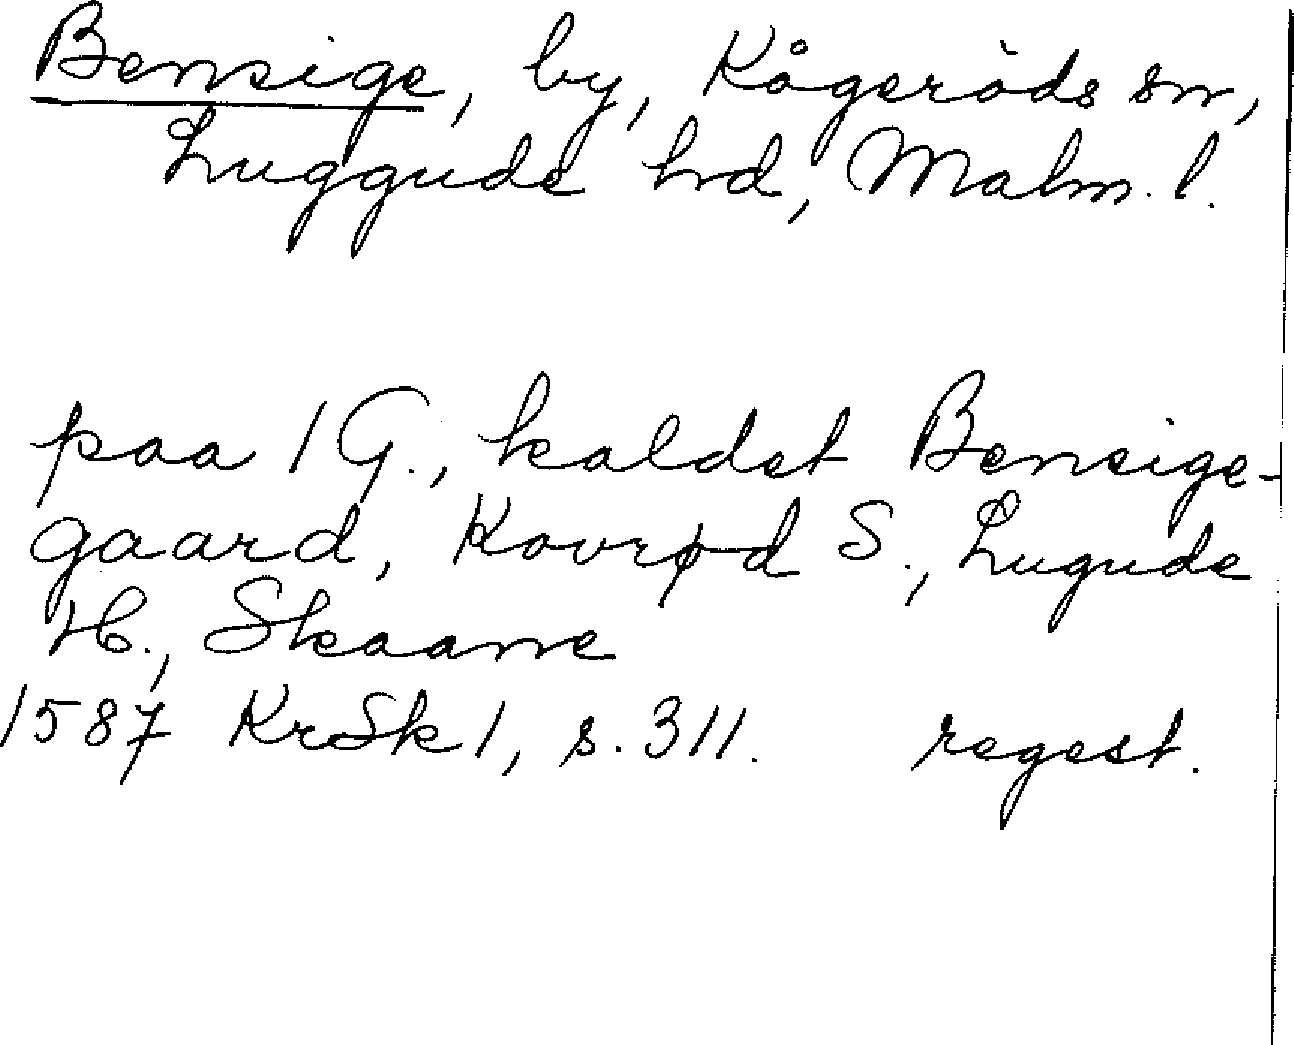 Bensige, by, Kågeröds sn,
Luggude hrd, Malm. l.
paa 1 G., kaldet Bensige-
gaard, Kovrød S., Lugude
H., Skaane
1587 KrSk 1, s. 311. regest.